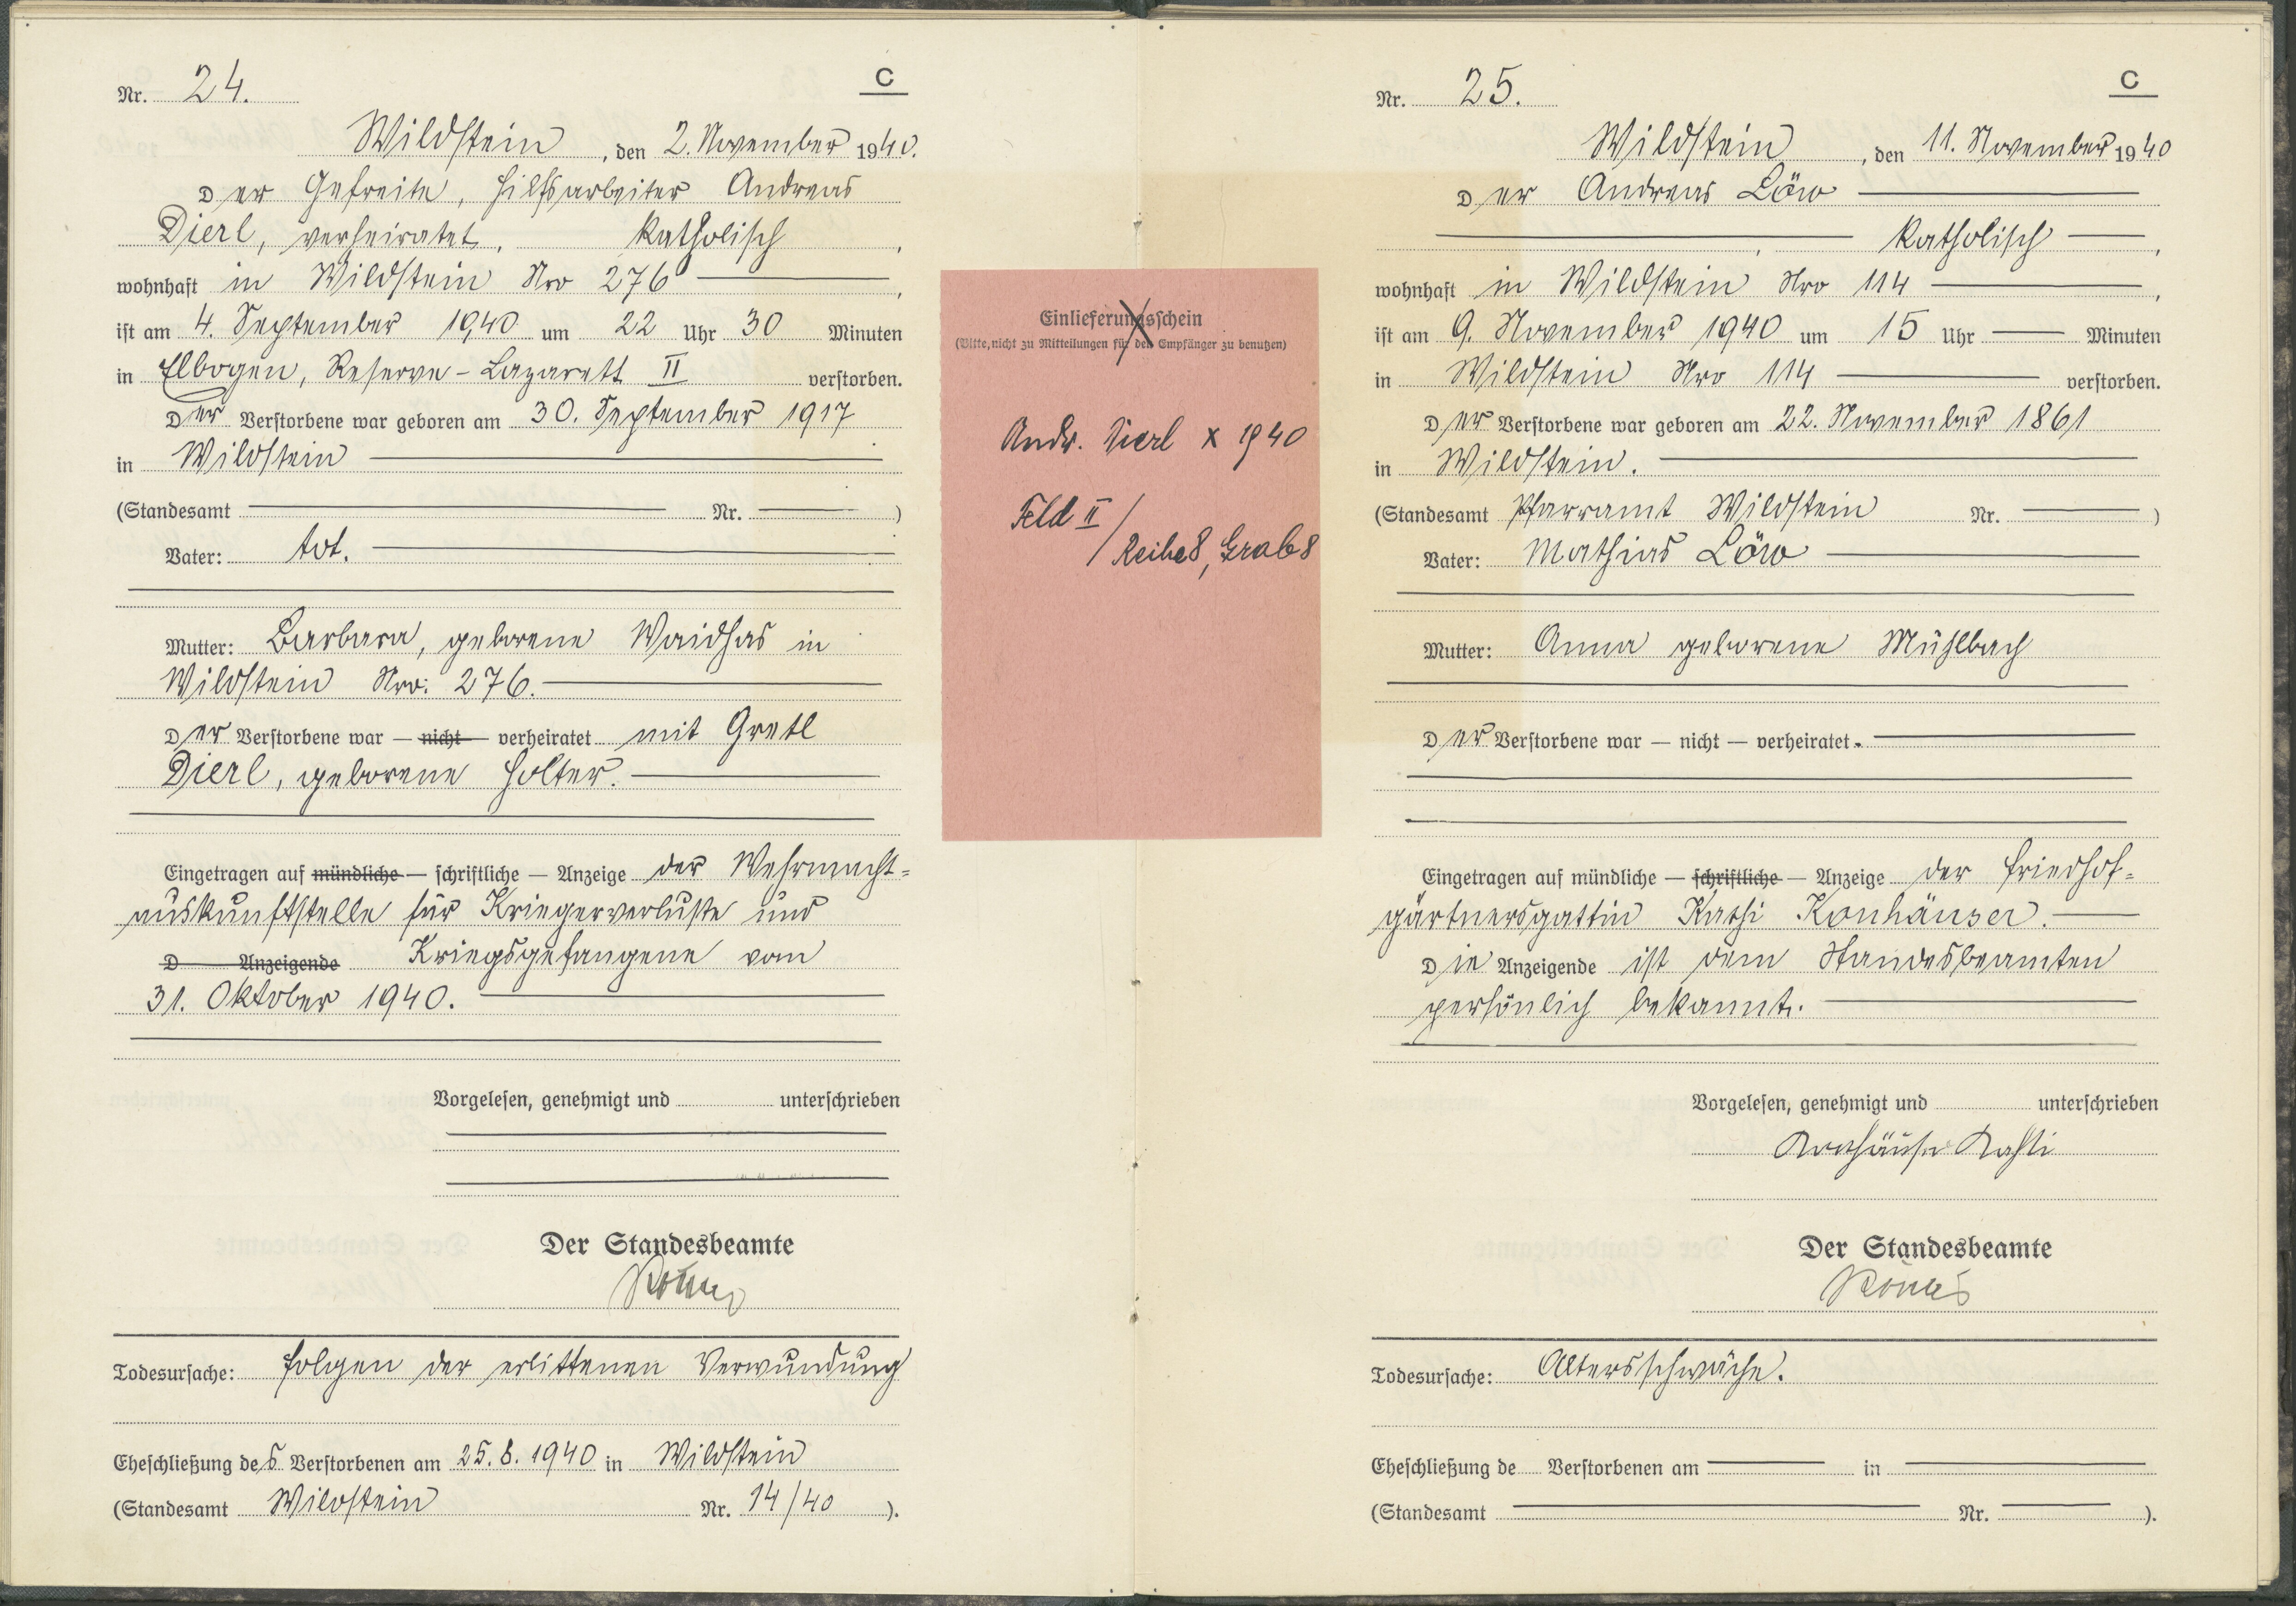 Nr. 24.
C
Wildstein, den 2. November 1940.
Der Gefreite, Hilfsarbeiter Andreas
Dierl, verheiratet, katholisch,
wohnhaft in Wildstein Nro 276,
ist am 4. September 1940 um 22 Uhr 30 Minuten
in Elbogen, Reserve-Lazarett II verstorben.
Der Verstorbene war geboren am 30. September 1917
in Wildstein
(Standesamt Nr. )
Vater: tot.
Mutter: Barbara, geborene Waidhas in
Wildstein Nro: 276.
Der Verstorbene war — nicht — verheiratet mit Gretl
Dierl, geborene Holter.
Eingetragen auf mündliche — schriftliche — Anzeige der Wehrmacht=
auskunftstelle für Kriegerverluste und
D Anzeigende Kriegsgefangene vom
31. Oktober 1940.
Vorgelesen, genehmigt und unterschrieben
Der Standesbeamte
Todesursache: Folgen der erlittenen Verwundung
Eheschließung des Verstorbenen am 25.8.1940 in Wildstein
(Standesamt Wildstein Nr. 14/40 ).
Einlieferungsschein
(Bitte, nicht zu Mitteilungen für den Empfänger zu benutzen)
Andr. Dierl x 1940
Feld II /
Reihe 8, Grab 8
Nr. 25.
C
Wildstein, den 11. November 1940
Der Andreas Löw
, katholisch,
wohnhaft in Wildstein Nro 114,
ist am 9. November 1940 um 15 Uhr — Minuten
in Wildstein Nro 114 verstorben.
Der Verstorbene war geboren am 22. November 1861
in Wildstein.
(Standesamt Pfarramt Wildstein Nr. )
Vater: Mathias Löw
Mutter: Anna geborene Mühlbach
Der Verstorbene war — nicht — verheiratet.
Eingetragen auf mündliche — schriftliche — Anzeige der Friedhof=
gärtnersgattin Kathi Konhäuser.
Die Anzeigende ist dem Standesbeamten
persönlich bekannt.
Vorgelesen, genehmigt und unterschrieben
Konhäuser Kathi
Der Standesbeamte
Todesursache: Altersschwäche.
Eheschließung de Verstorbenen am in
(Standesamt Nr. ).